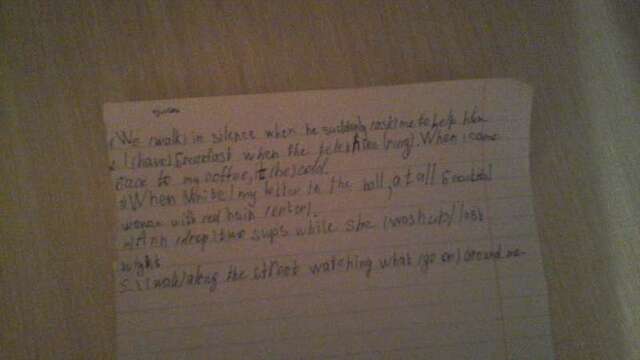 1 We (walk) in silence when he suddenly (ask) me to help him
2 I (have) breakfast when the telephone (ring). When I came
back to my coffee, it (be) cold.
3) When I (write) my letter in the hall, a tall beautiful
woman with red hair (enter).
4) Ann (drop) two cups while she (wash up) last
night
5.) I (walk) along the street watching what (go on) around me.